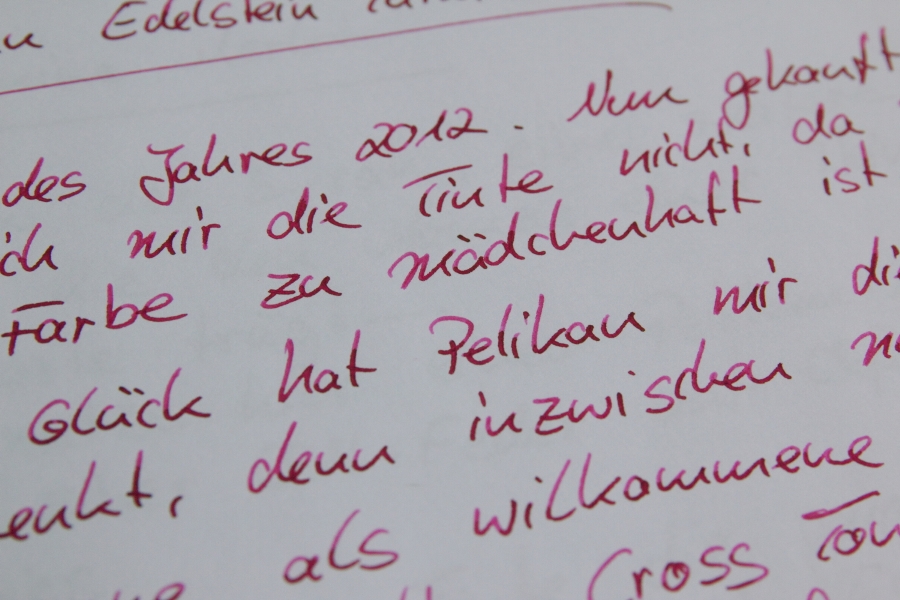 Edelstein
des Jahres 2012. Nun gekauft
ich mir die Tinte nicht, da
Farbe zu mädchenhaft ist
Glück hat Pelikan mir di
enkt, denn inzwischen
als willkommene
Cross